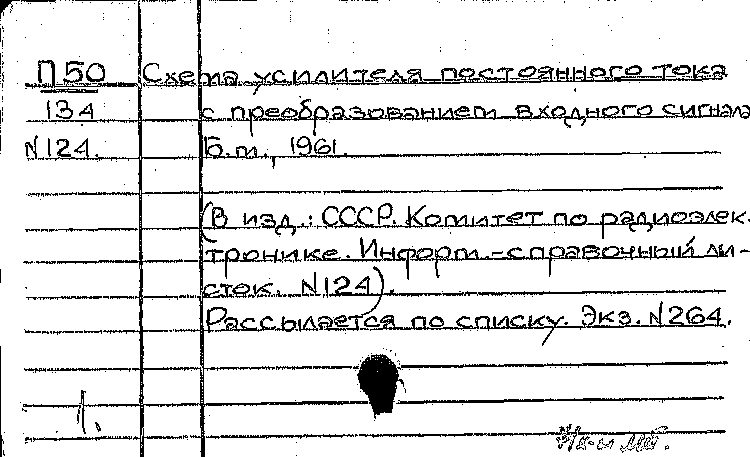 П50 Схема усилителя постоянного тока
134 с преобразованием входного сигнала
N124. Б.м., 1961.
(В изд.: СССР. Комитет по радиоэлек-
тронике. Информ.-справочный ли-
сток. N124).
Рассылается по списку. Экз. N264.
1.